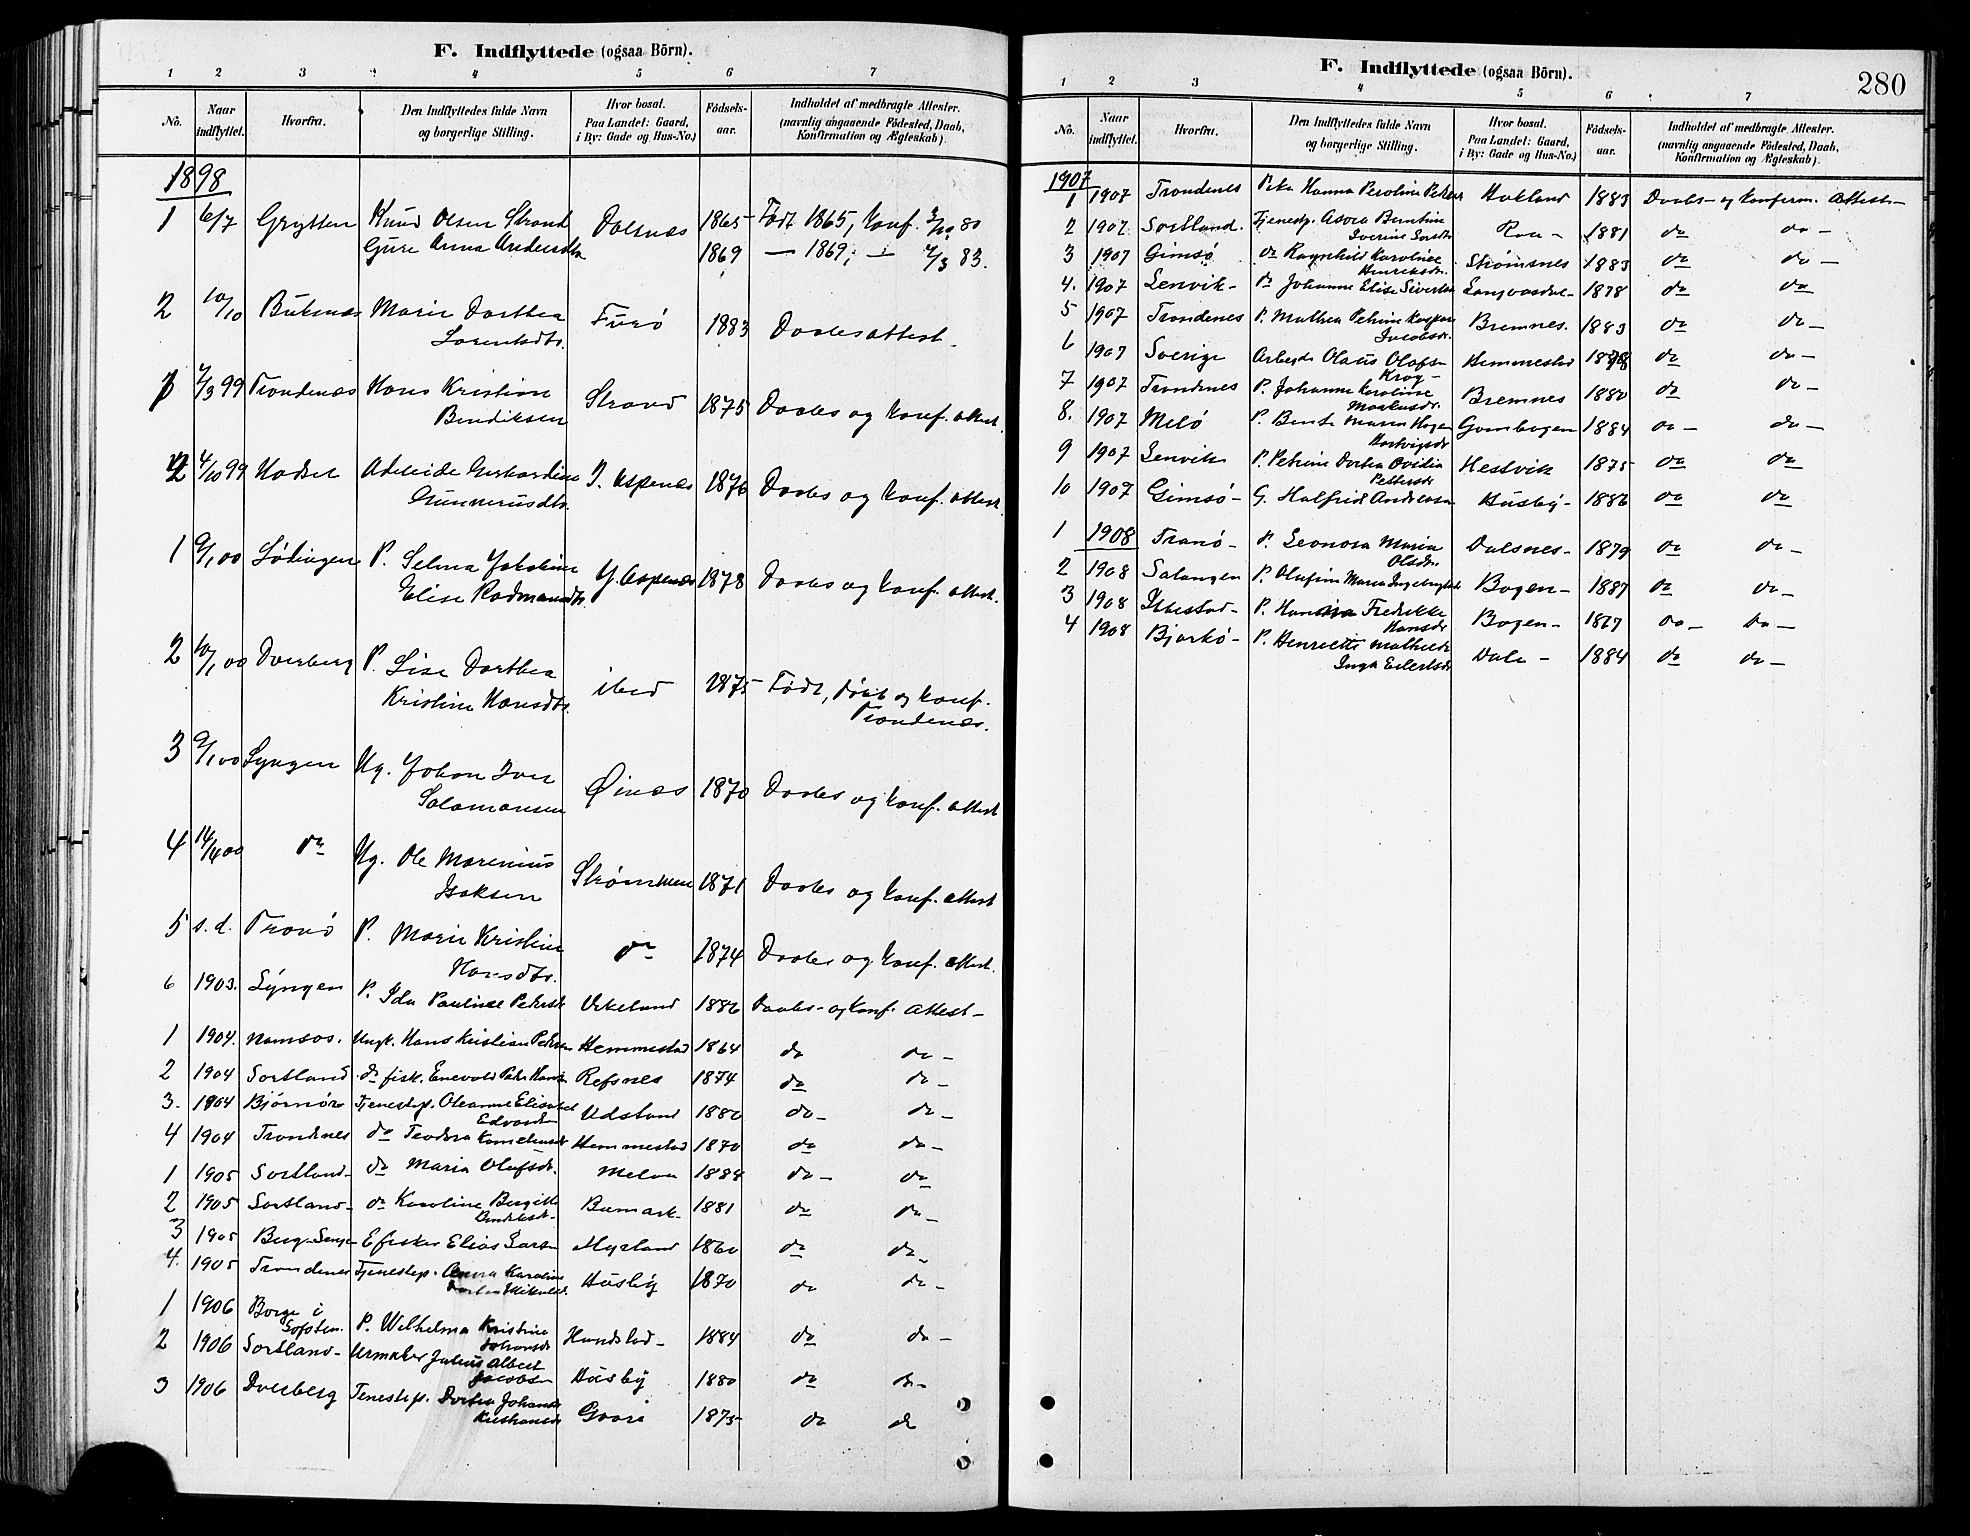 F. Indflyttede (ogsaa Börn).
1 2 3 4 5 6 7
No. Naar indflyttet. Hvorfra. Den Indflyttedes fulde Navn og borgerlige Stilling. Hvor bosat. Paa Landet: Gaard, i By: Gade og Hus-No.) Födsels-aar. Indholdet af medbragte Attester. (navnlig angaaende Födested, Daab, Konfirmation og Ægteskab).
1898
1 6/7 Grytten Knud Olsen Strand Dalsnæs 1865 Født 1865, Konf. 80
Gure Anna Andersdtr 1869 — 1869, — 83.
2 10/10 Buknæs Marie Dorthea Furø 1883 Daabsattest.
Lorentsdtr.
1 99 Trondenæs Hans Kristian Strand 1875 Daabs og Konf. attest.
Bendiksen
2 4/10 99 Hadsel Adeleide Gerhardine Y. Aspenæs 1876 Daabs og Konf. attest.
Gunnerusdtr.
1 9/1 00 Lødingen P. Selma Jakobine Y. Aspenæs 1878 Daabs og Konf. attest.
Elise Rodmandtr.
2 10/1 00 Dverberg P. Lise Dorthea ibid 1875 Født, døbt og Konf.
Kristine Hansdtr. Trondenæs.
3 9/1 00 Lyngen Ug. Johan Iver Øinæs 1870 Daabs og Konf. attest
Salamonsen
4 14/4 00 do Ug. Ole Marenius Strømmen 1871 Daabs og Konf. attest
Isaksen
5 s. d. Tranø P. Marie Kristine do 1874 Daabs og Konf. attest.
Hansdtr.
6 1903. Lyngen P. Ida Pauline Petersdtr Vikeland 1886 Daabs- og Konf. attest-
1 1904. Namsos. Ungk. Hans Kristian Petersen Hemmestad 1864 do do-
2 1904 Sortland do fisk. Enevold Peder Hansen Refsnes 1874 do do-
3. 1904 Bjørnør Tjenestep. Oleanne Elisabet Udstrand 1880 do- do-
4 1904 Trondenes do Teodora Kornelius Hemmestad 1870 do do-
1 1905 Sortland- do Maria Olufsdr. Melaa 1884 do- do
2 1905 Sortland- do Karoline Bergitte 1881 do do-
3 1905 Berg Senjen Efisker Elias Larsen Myrland 1860 do do-
4. 1905 Trondenes Tjenestep. Anna Karoline Husby 1870 do do-
1 1906 Borge i P. Wilhelma Kristine Hundstad- 1884 do do-
Lofoten. Johansdr
2 1906 Sortland- Urmaker Julius Albert Husby 1880 do do-
Jacobsen
3 1906 Dverberg Tenestep. Dortea Johanna 1875- do do
Kristiansdr
F. Indflyttede (ogsaa Börn).
280
1 2 3 4 5 6 7
No. Naar indflyttet. Hvorfra. Den Indflyttedes fulde Navn og borgerlige Stilling. Hvor bosat. Paa Landet: Gaard, i By: Gade og Hus-No.) Födsels-aar. Indholdet af medbragte Attester. (navnlig angaaende Födested, Daab, Konfirmation og Ægteskab).
1907
1 1907 Trondenes Pike Hanna Peroline Peters Hokland 1883 Daabs- og Konferm. Attest-
2 1907. Sortland. Tjenestp. Asora Berntine 1881 do do-
3 1907 Gimsø do Ragnhild Karoline Strømsnes 1883 do do-
Henriksdr.
4. 1907 Lenvik- do Johanne Elise Sivertsn Langvasdal- 1878 do do
5 1907 Trondenes P. Mathea Petrine Bremnes. 1883 do do-
Jacobsdr.
6 1907 Sverige Arbeyder Olaus Olafsn Hemmestad do do-
Krog-
7 1907 Trondenes P. Johanne Karoline Bremnes 1880 do do-
Markusdr.
8. 1907 Melø P. Bente Maria Hagen 1884 do- do-
Hartvigsdr
9 1907 Lenvik P. Petrine Dortea Ovidia Hestvik 1875 do do
Pettersdr
10 1907 Gimsø- G. Halfrid Andreassen Husby- 1886 do do
1 1908 Tranø- P. Leonora Maria Dalsnes- 1879 do do-
Olsdr.
2 1908 Salangen P. Olufine Maria Ingebrigtsd Bogen- 1887 do do-
3 1908 Ibbestad- P. Hansina Fredrikke Bogen- 1867 do- do-
Hansdr
4 1908 Bjarkø- P. Henriette Mathilde Dale- 1884 do do-
Inga Eilertsdr